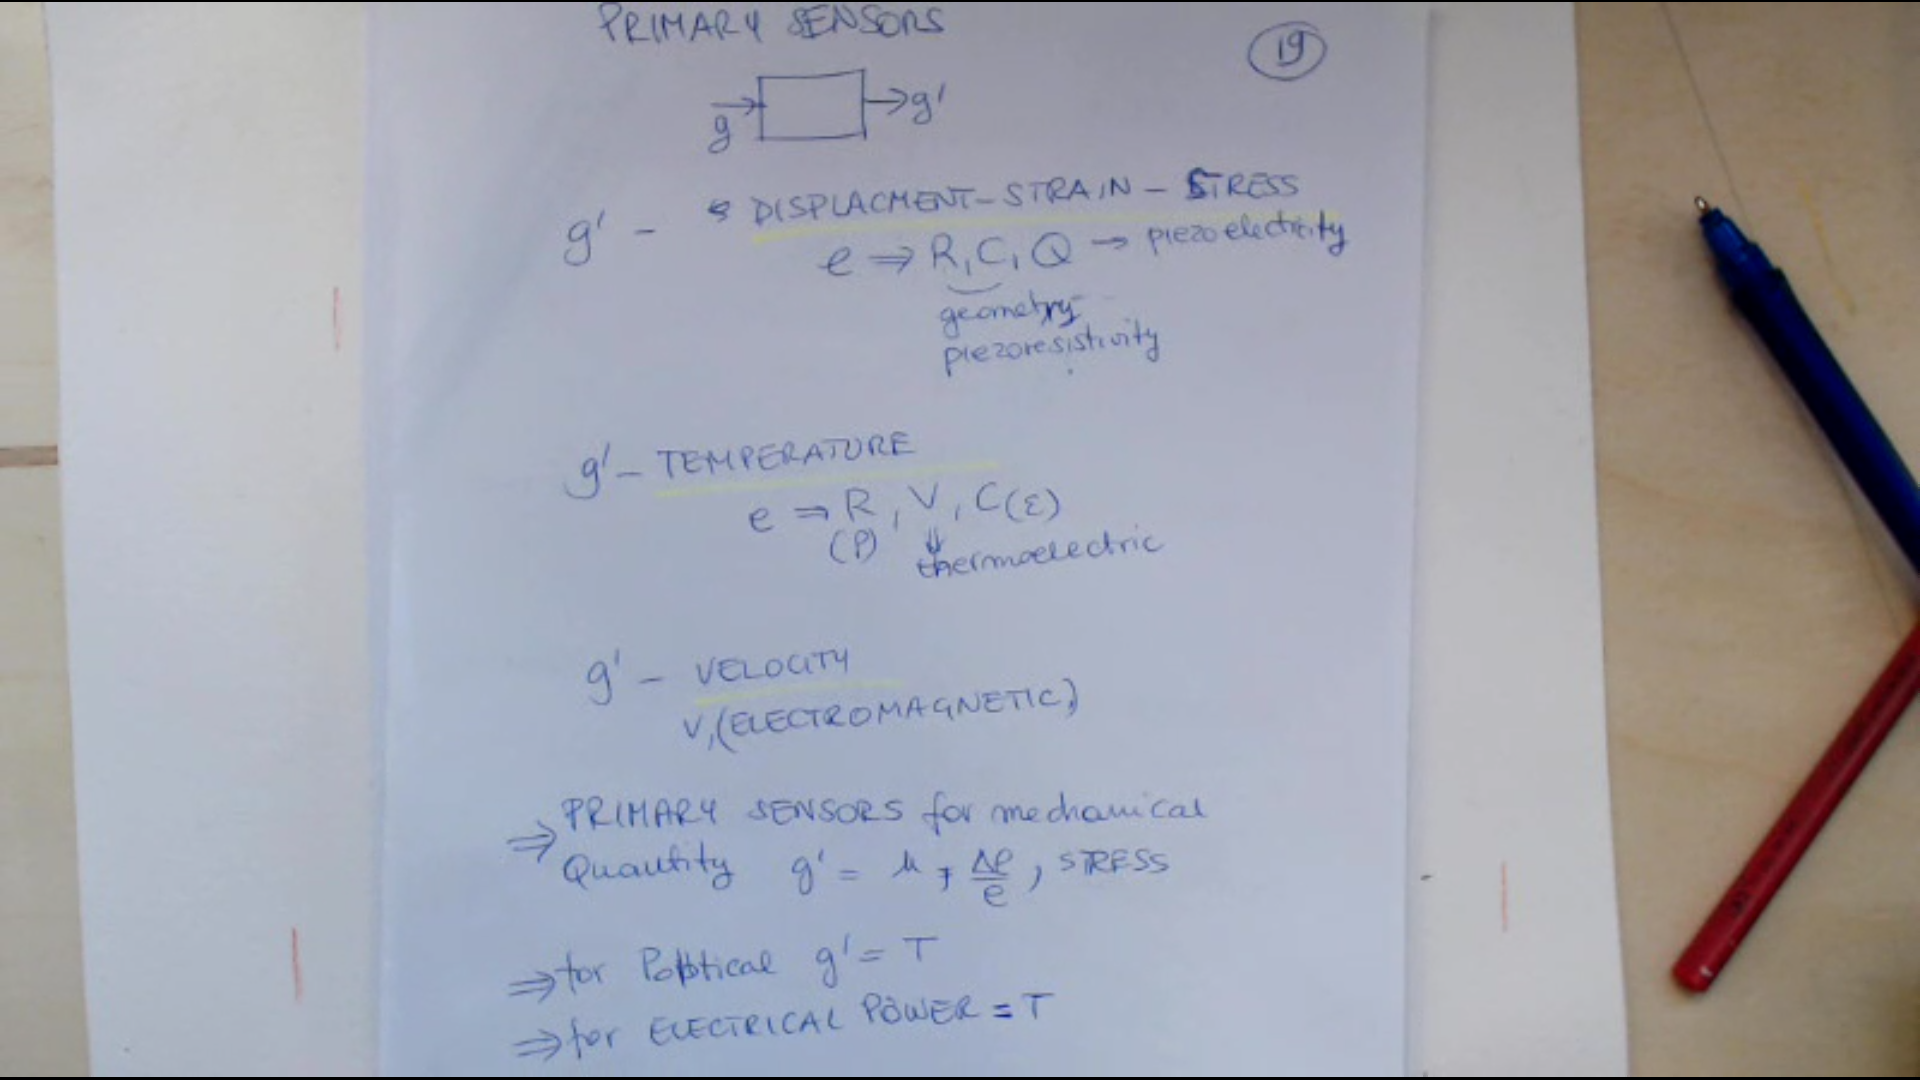 PRIMARY SENSORS
19
g → g'
g' - DISPLACMENT - STRAIN - STRESS
e ⇒ R, C, Q → piezoelectricity
geometry
piezoresistivity
g' - TEMPERATURE
e ⇒ R, V, C(ε)
(ρ) ⇓ thermoelectric
g' - VELOCITY
V, (ELECTROMAGNETIC)
⇒ PRIMARY SENSORS for mechanical
Quantity g' = μ, Δℓ/ℓ, STRESS
⇒ for Poptical g' = T
⇒ for ELECTRICAL POWER = T